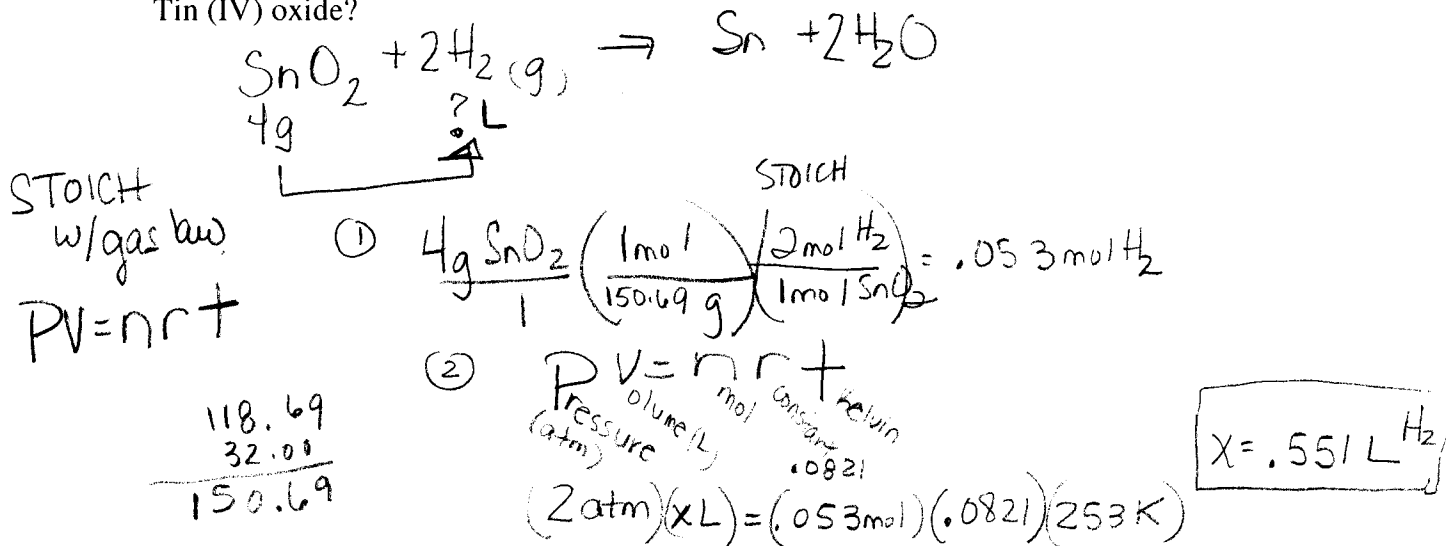 Tin (IV) oxide?
SnO2 + 2H2 (g) → Sn + 2H2O
4g ? L
STOICH
w/gas law
PV=nrt
STOICH
① 4g SnO2 / 1 (1mol / 150.69 g)(2mol H2 / 1mol SnO2) = .053mol H2
② PV=nrt
Pressure (atm) Volume (L) mol constant .0821 kelvin
118.69
32.00
150.69
(2atm)(xL)=(.053mol)(.0821)(253K)
X=.551 L H2